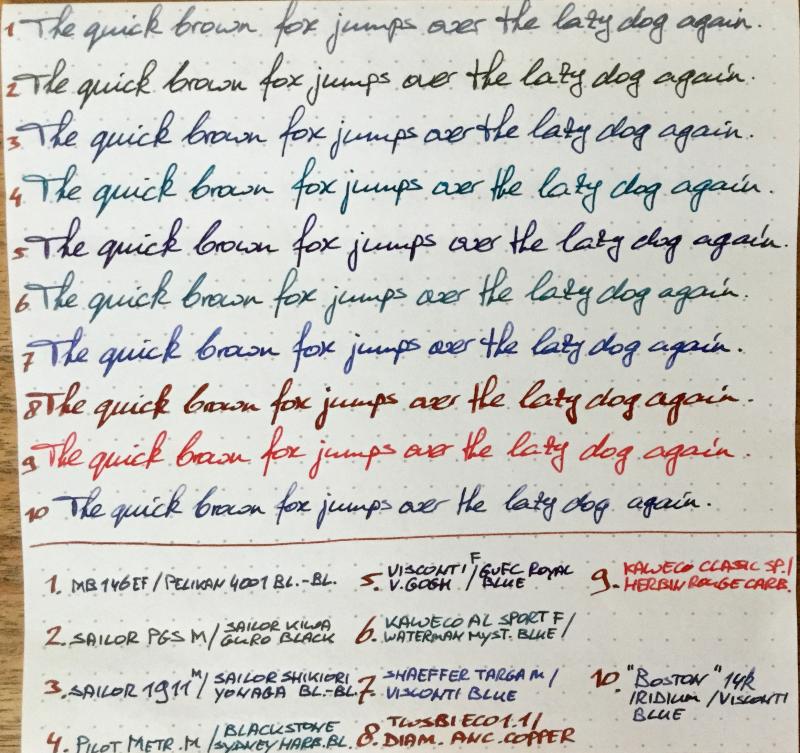 1 The quick brown fox jumps over the lazy dog again.
2 The quick brown fox jumps over the lazy dog again.
3 The quick brown fox jumps over the lazy dog again.
4 The quick brown fox jumps over the lazy dog again.
5 The quick brown fox jumps over the lazy dog again.
6 The quick brown fox jumps over the lazy dog again.
7 The quick brown fox jumps over the lazy dog again.
8 The quick brown fox jumps over the lazy dog again.
9 The quick brown fox jumps over the lazy dog again.
10 The quick brown fox jumps over the lazy dog again.
1. MB 146EF / PELIKAN 4001 BL.-BL.
2. SAILOR PGS M / SAILOR KIWA
GURO BLACK
3. SAILOR 1911 M / SAILOR SHIKIORI
YONAGA BL.-BL.
4. PILOT METR. M / BLACKSTONE
SYDNEY HARB. BL.
5. VISCONTI F / 
V. GOGH / GVFC ROYAL
BLUE
6. KAWECO AL SPORT F /
WATERMAN MYST. BLUE /
7 SHAEFFER TARGA M /
VISCONTI BLUE
8. TWSBI ECO 1.1 /
DIAM. ANC. COPPER
9. KAWECO CLASIC SP. /
HERBIN ROUGE CARB.
10. "BOSTON" 14K
IRIDIUM / VISCONTI
BLUE